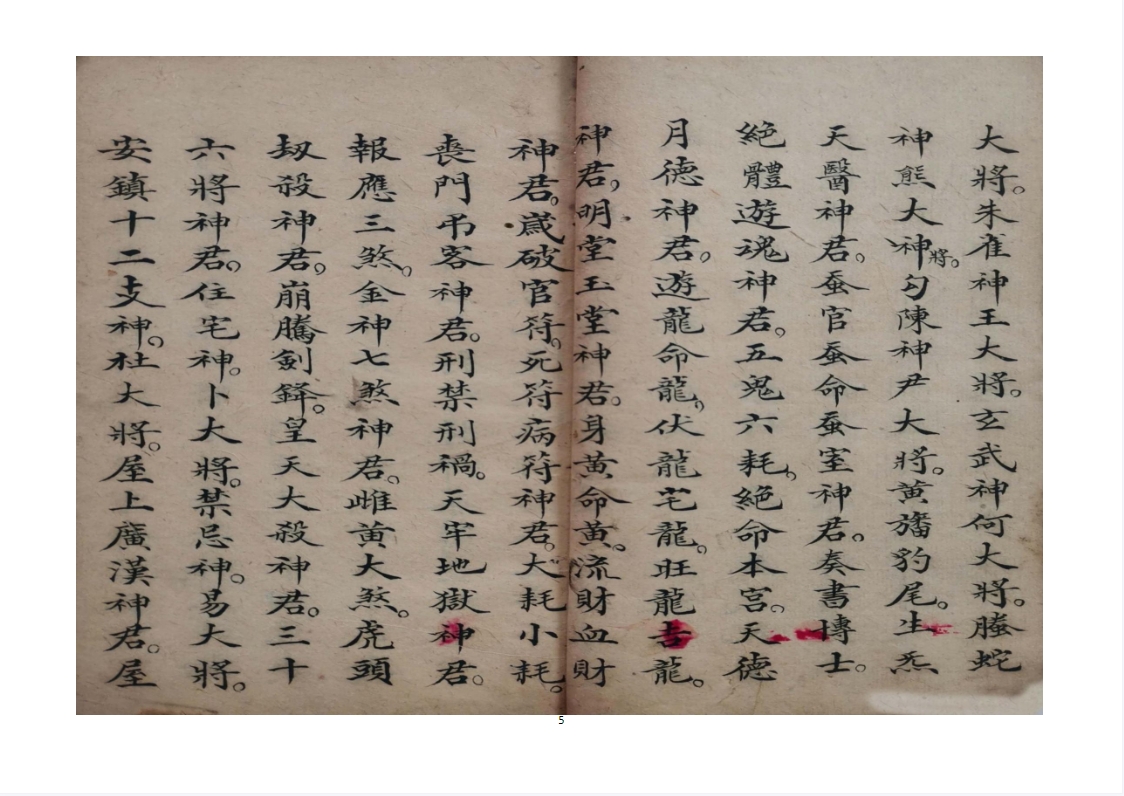 大將。朱雀神王大將。玄武神何大將。螣蛇
神熊大神將。勾陳神尹大將。黃旛豹尾。生炁
天醫神君。蚕官蚕命蚕室神君。奏書博士。
絕體遊魂神君。五鬼六耗。絕命本宮。天德
月德神君。遊龍命龍。伏龍宅龍。旺龍吉龍。
神君。明堂玉堂神君。身黃命黃。流財血財
神君。歲破官符。死符病符神君。大耗小耗。
喪門吊客神君。刑禁刑禍。天牢地獄神君。
報應三煞。金神七煞神君。雌黃大煞。虎頭
劫殺神君。崩騰劍鋒。皇天大殺神君。三十
六將神君。住宅神。卜大將。禁忌神。易大將。
安鎮十二支神。社大將。屋上廣漢神君。屋
5